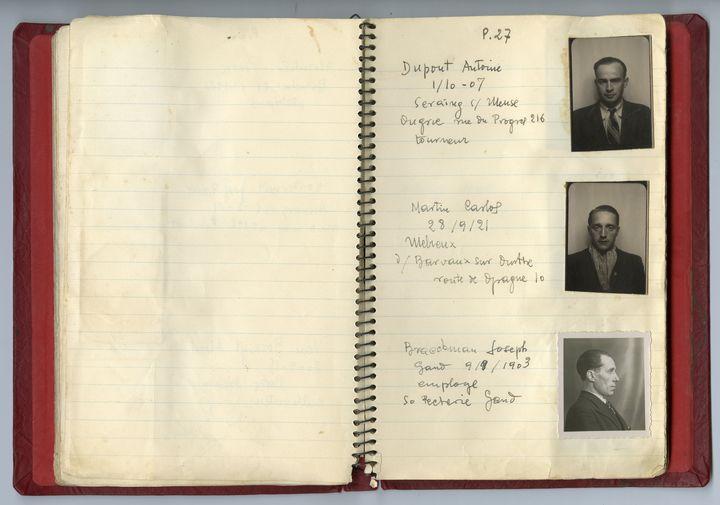 P.27
Dupont Antoine
1/10-07
Seraing s/ Meuse
Ougrée rue du Progrès 216
tourneur
Martin Carlos
28/9/21
d/ Barvaux sur Ourthe
route de 10
Braeckman Joseph
Gand 9/ /1903
employé
Gand